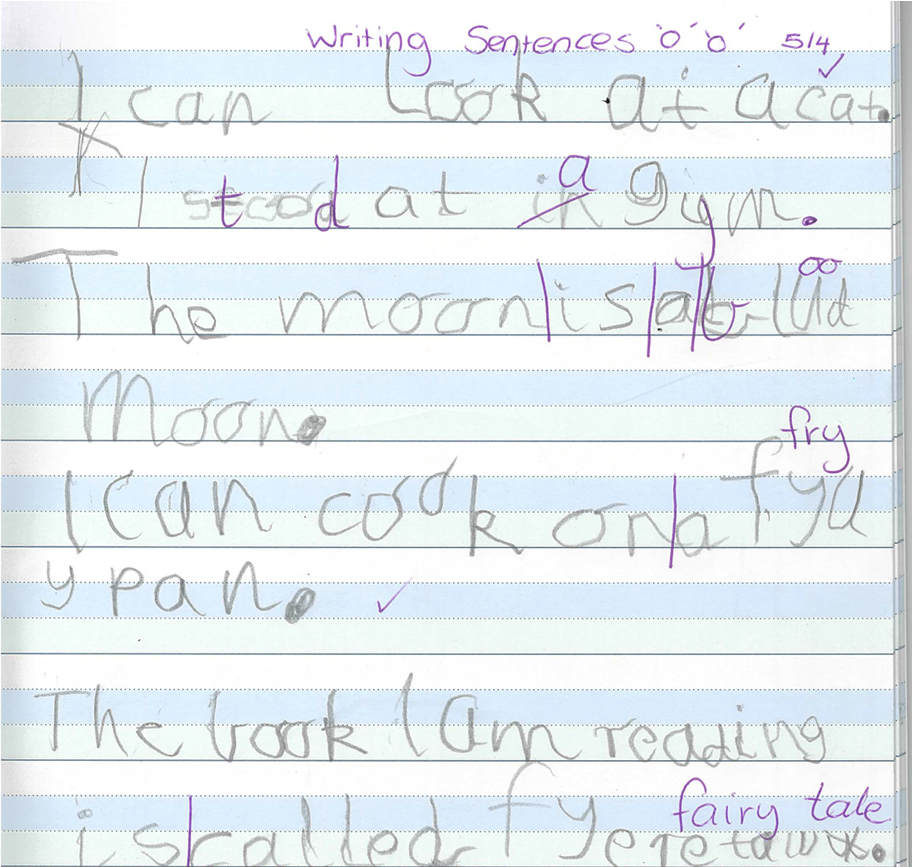 Writing Sentences 'o' 'o' 5/4
I can Look at a cat.
I stood at in a gym.
The moon is a blud
oo
Moon.
fry
I can cook on a fya
y pan.
The book I am reading
fairy tale
is called fyeretawk.